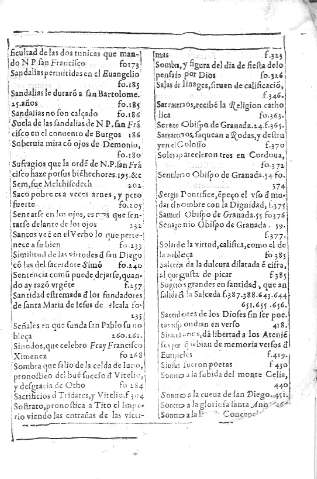 ficultad de las dos tunicas que man-
do N.P.san Francisco fo.173
Sandalias permitidas en el Euangelio
fo.185
Sandalias le duraró a san Bartolome.
25.años fo.185
Sandalias no son calçado fo.186
Suela de las sandalias de N.P.san Frá
cisco en el conuento de Burgos 186
Soberuia mira có ojos de Demonio,
fo.180
Sufragios que la ordé de N.P.san Frá
cisco haze por sus biéhechores.195.&c
Sem, fue Melchisedech 202
Saco pobre es a veces arnes, y peto
fuerte fo.205
Sentarse en los ojos, es mas que sen-
tarse delante de los ojos 252
Santos veé en el Verbo lo que perte-
nece a su bien fo.233
Similitud de las virtudes de san Diego
có las del sacerdote Simó fo.240
Sentencia comú puede dejarse, quan-
do ay razó vrgéte f.257
Santidad estremada de los fundadores
de santa Maria de Iesus de Alcala fo.
235
Señales en que funda san Pablo su no
bleça 260.261.
Sinodos, que celebro Fray Francisco
Ximenez fo 268
Sombra que salio de la celda de Iano,
pronostico del bué sucesso d Vitelio,
y desgracia de Otho fo 284
Sacrificios d Tridates, y Vitelio.f 304
Sostrato, pronostica a Tito el Impe-
rio viendo las entrañas de las victi-
mas f.325
Sombra, y figura del dia de fiesta de lo
pensado por Dios fo.326.
Salas de Images, siruen de calificació,
f.346.
Sarracenos, recibé la Religion catho
lica fo.363.
Sereno Obispo de Granada. 24 f.365.
Sarracenos, saquean a Rodas, y destru
yen el Colosso f.370
Soles aparecieron tres en Cordoua,
fo.372
Sentario Obispo de Granada. 54 fo.
374
Sergio Pontifice, épeço el vso d mu-
dar el nombre con la Dignidad, f.375
Samuel Obispo de Granada. 55 fo.376
Obispo de Granada. 59.
f.377.
Solar de la virtud, califica, como el de
la nobleça fo 385
de la dulçura dilatada é cifra,
al que gusta de picar f 385
Sugetos grandes en santidad, que an
salido de la Salceda f.387.388.643.644
651.655.656.
Sacerdotes de los Dioses
respondian en verso 418.
dá libertad a los Atenié
ses por q sabian de memoria versos d
Euripides f.419.
fueron poetas f 430
Soneto a la subida del monte Celia,
440
Soneto a la cueua de san Diego. 452.
Soneto a la gloriosa santa
Soneto a la